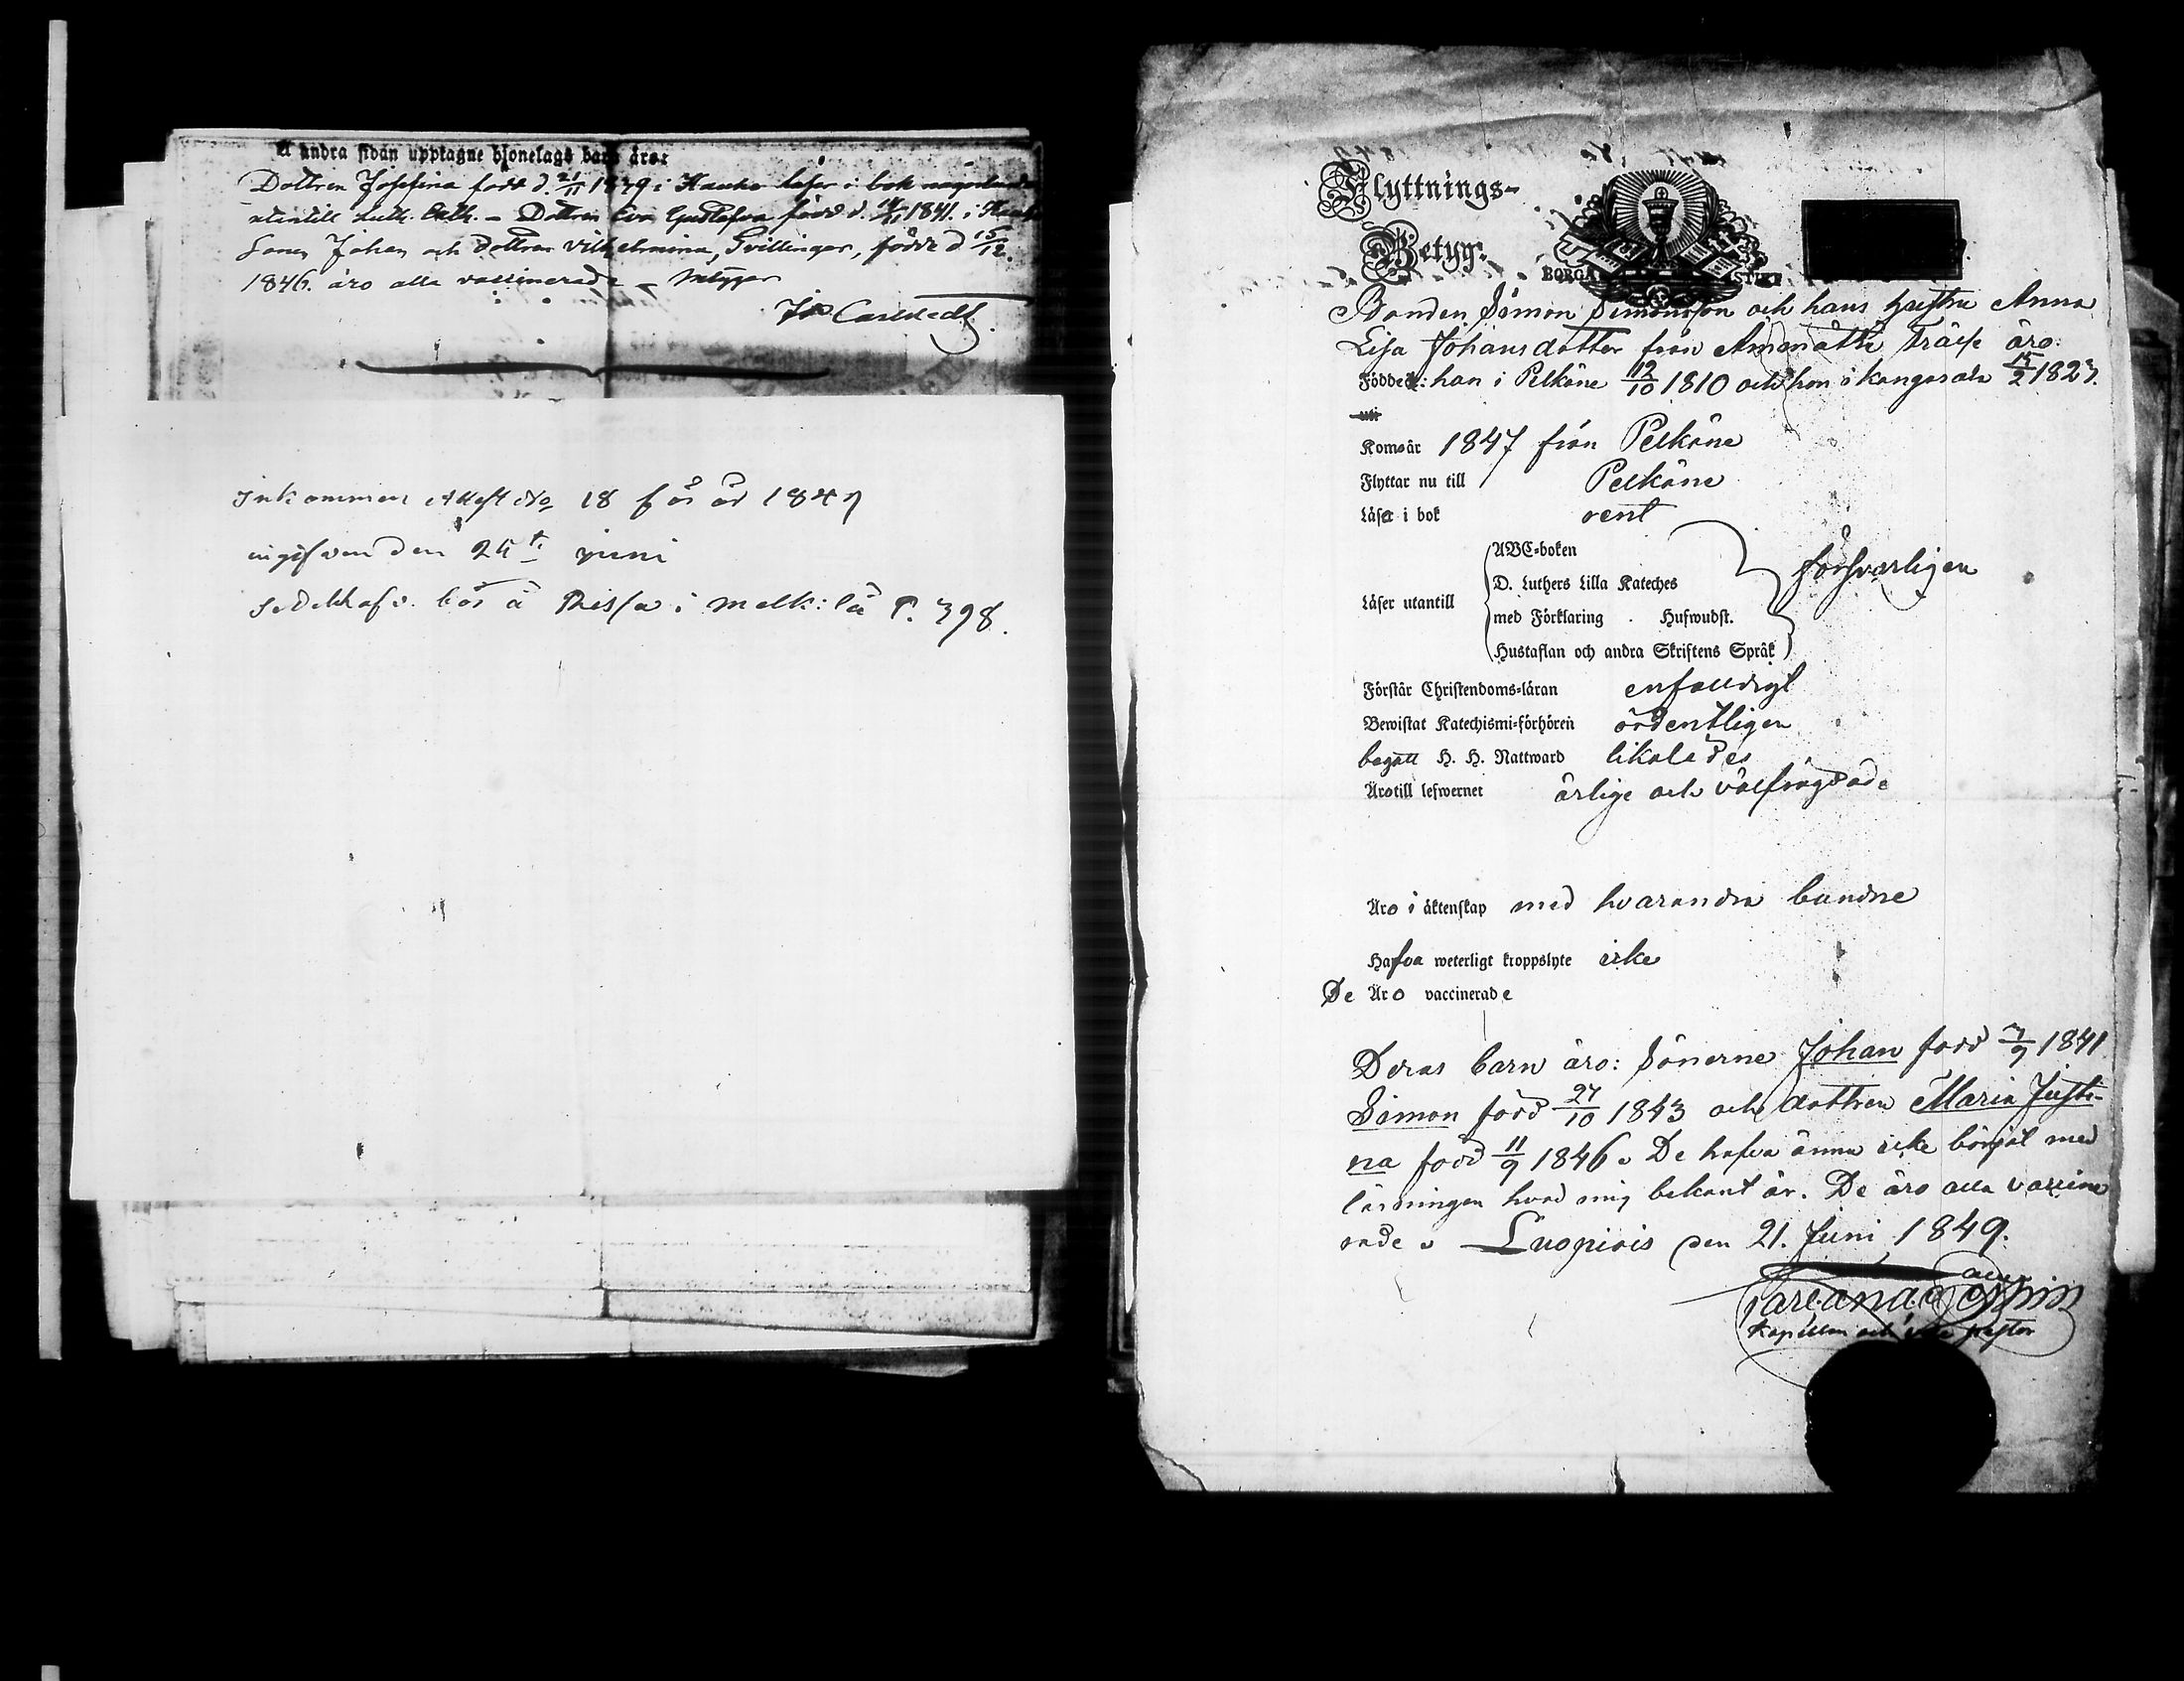 å andra sidan upptagne hjonelags barn äro:
Dottren Josefina född d. 21/11 1839 i Hauho läser i bok någorlunda
utantill Luth. Cath. – Dottren Eva Gustafva född d. 14/11 1841. i
Sonen Johan och Dottren Vilhelmina, Tvillingar, födde d 15/12.
1846. äro alla vaccinerade – intygar
Carlstedt.
Inkommen Attest No 18 för år 1849
ingifven den 24de juni
bör å i P. 398.
Flyttnings-
Betyg.
BORGÅ STIFT
Bonden Simon Simonsson och hans hustru Anna
Lisa Johansdotter från Träsk äro:
Födde: han i Pelkäne 12/10 1810 och hon i Kangasala 15/2 1823.
uti
Komo år 1847 från Pelkäne
Flyttar nu till Pelkäne
Läsa i bok rent
ABC-boken
D. Luthers Lilla Kateches försvarligen
Läser utantill
med Förklaring . Hufwudst.
Hustaflan och andra Skriftens Språk
Förstår Christendoms-läran enfaldigt
Bewistat Katechismi-förhören ordentligen
begått H. H. Nattward likaledes
Äro till lefwernet ärlige och välfrägdade
Äro i äktenskap med hvarandra bundne
Hafva weterligt kroppslyte icke
De Äro vaccinerade
Deras barn äro: Sönerne Johan född 7/9 1841
Simon född 27/10 1843 och dottren Maria Justi-
na född 11/9 1846. De hafva ännu icke börjat med
läsningen hvad mig bekant är. De äro alla vaccine
rade. Luopiois den 21. Juni 1849.
Kapellan och pastor